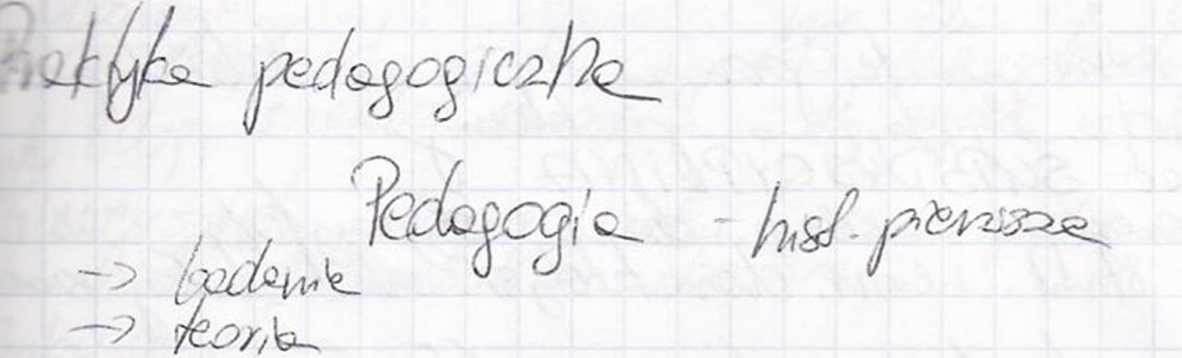 Praktyka pedagogiczna
Pedagogia - hist. pierwsza
→ badania
→ teoria